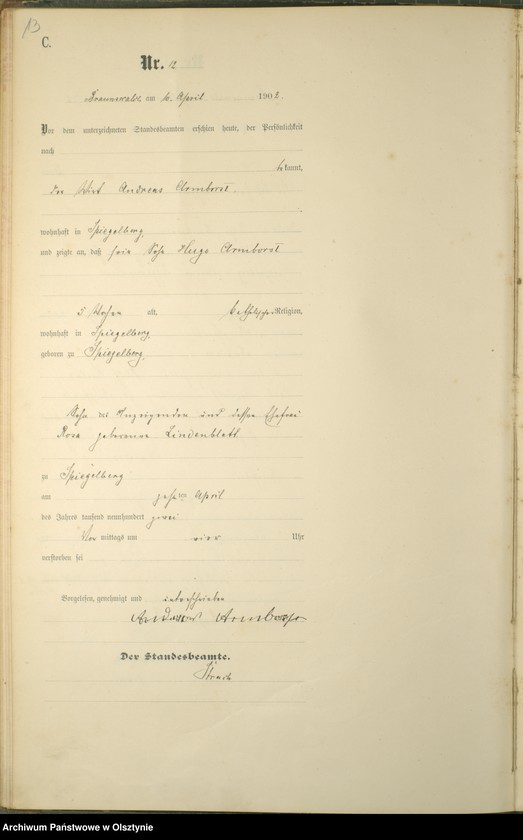 13
C.
Nr. 12
Braunswalde am 10. April 1902.
Vor dem unterzeichneten Standesbeamten erschien heute, der Persönlichkeit
nach
bekannt,
der Wirt Andreas Armborst
wohnhaft in Spiegelberg
und zeigte an, daß sein Sohn Hugo Armborst
5 Wochen alt, katholischer Religion,
wohnhaft in Spiegelberg,
geboren zu Spiegelberg,
Sohn des Anzeigenden und dessen Ehefrau
Rosa geborenen Lindenblatt
zu Spiegelberg
am ten April
des Jahres tausend neunhundert zwei
Vor mittags um vier Uhr
verstorben sei
Vorgelesen, genehmigt und unterschrieben
Andreas Armborst
Der Standesbeamte.
Archiwum Państwowe w Olsztynie